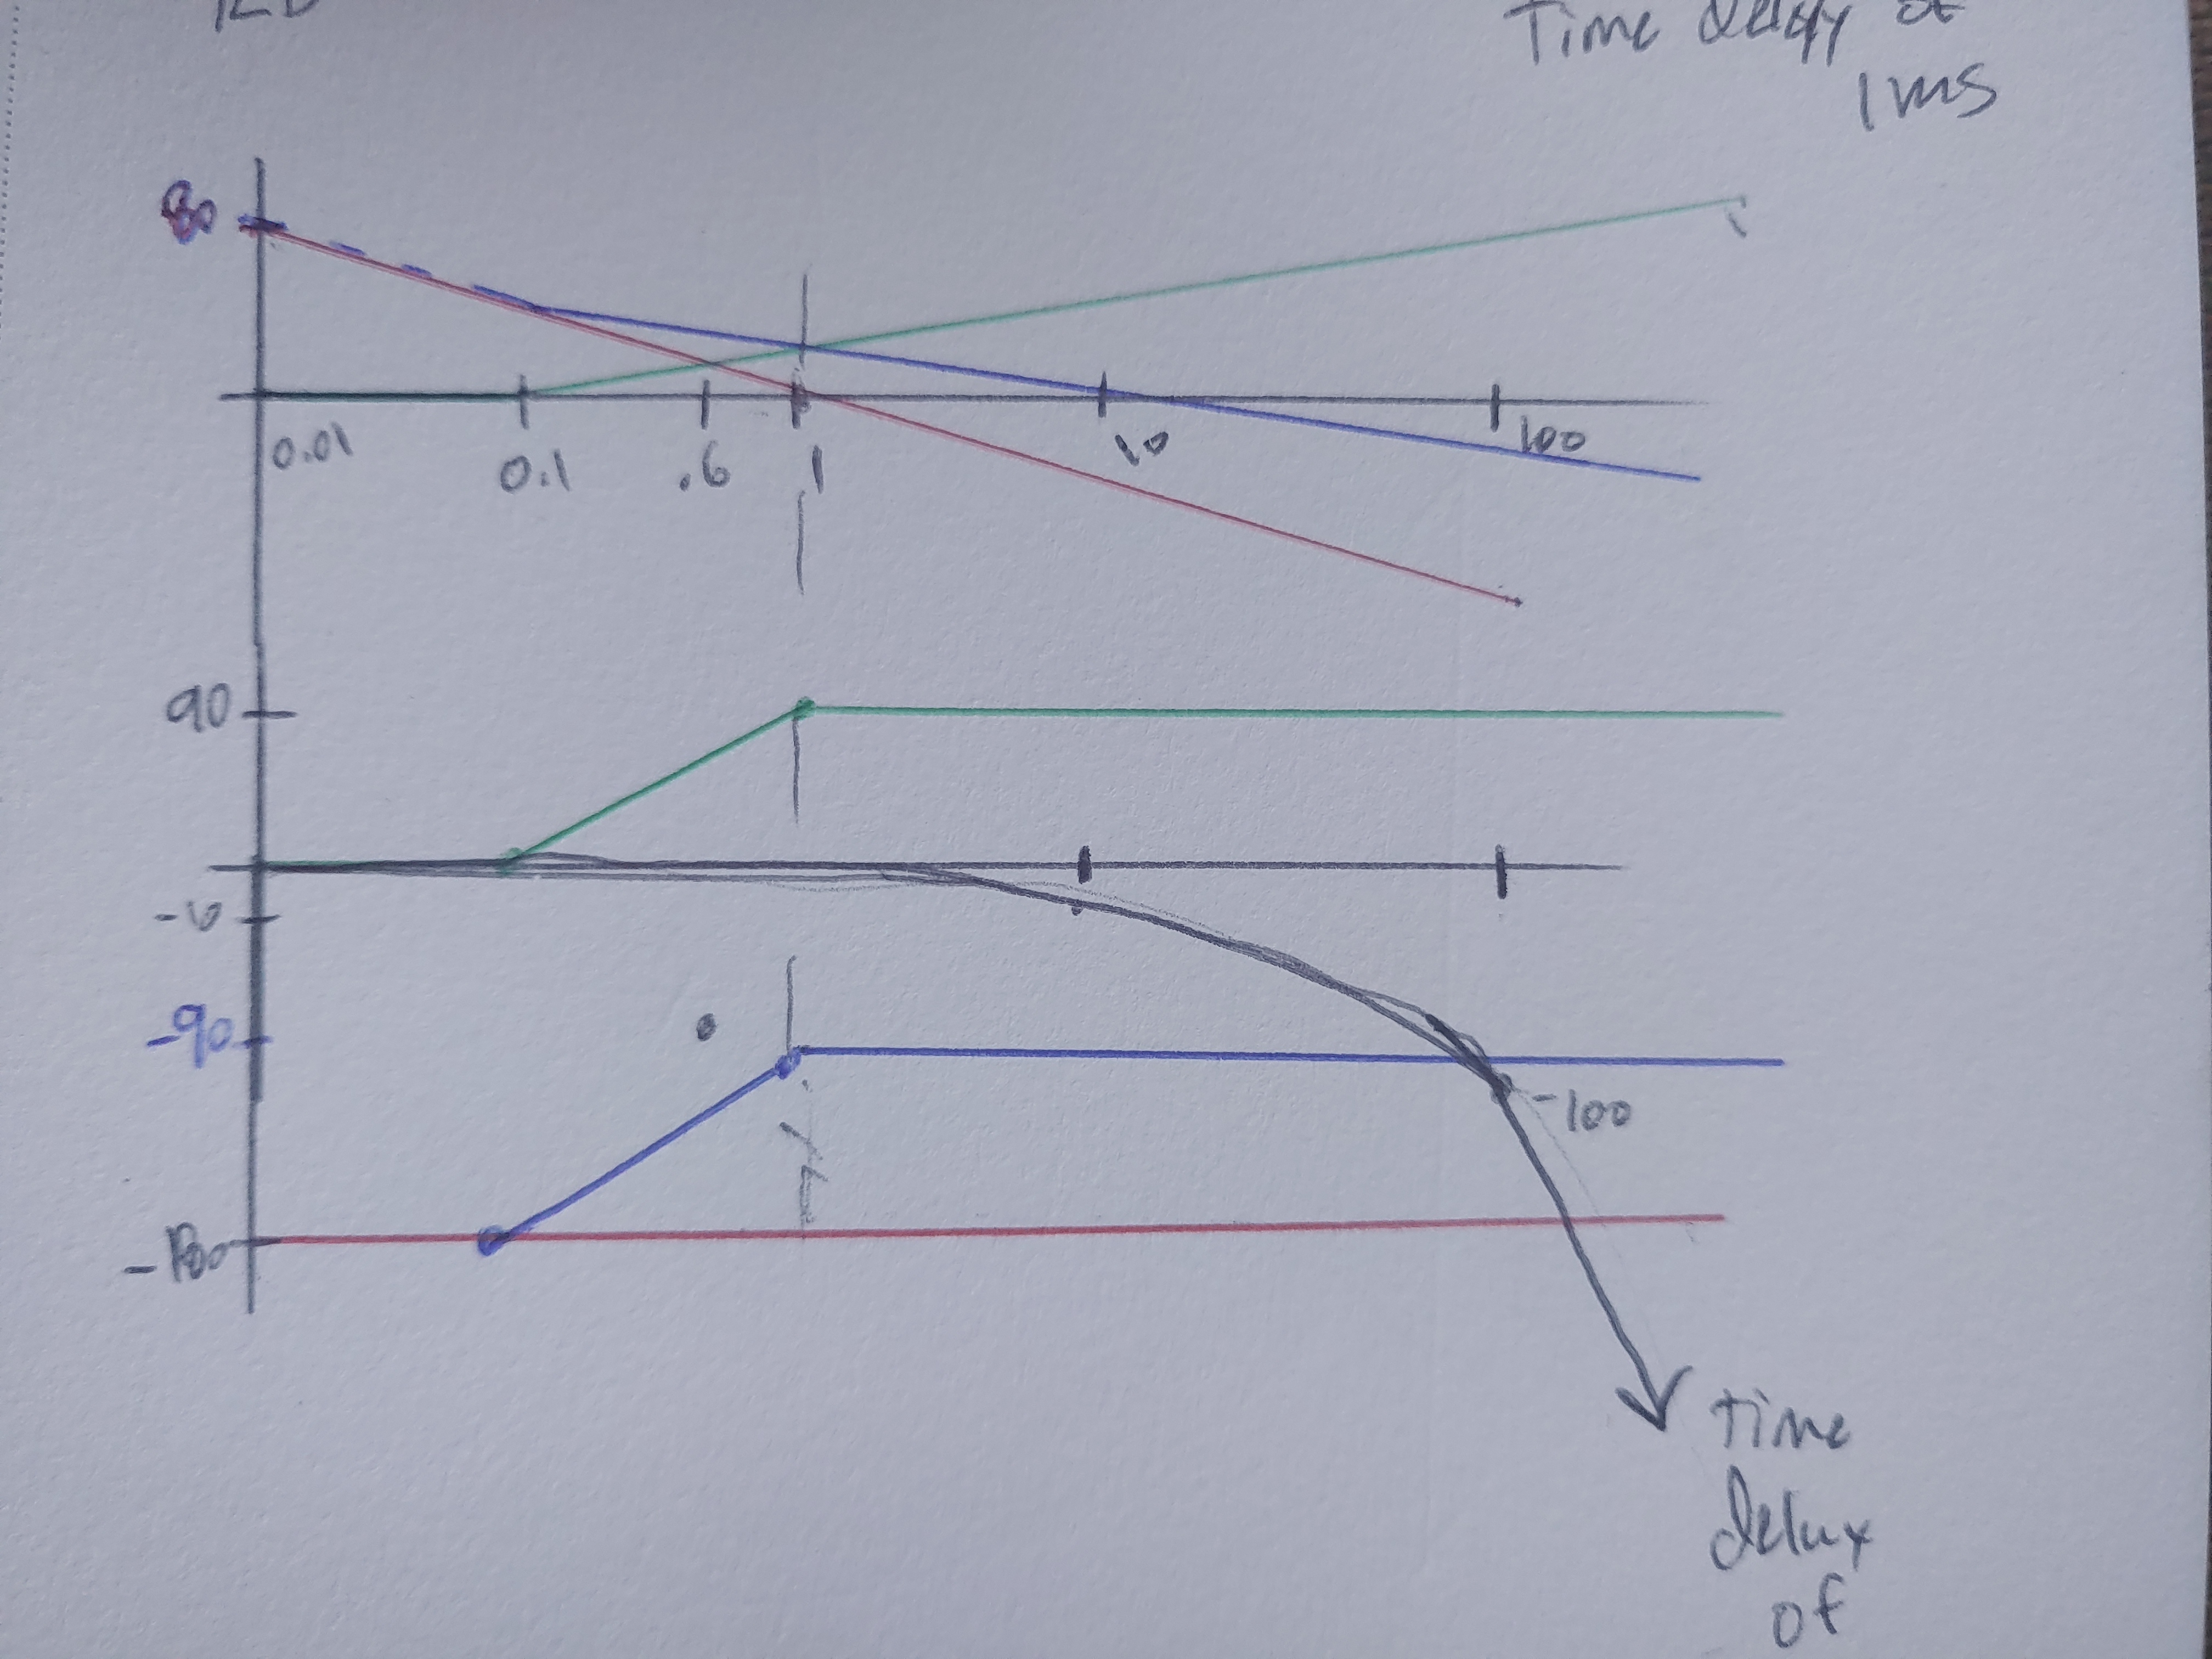 Time delay of
1ms
80
0.01
0.1
.6
1
10
100
90
-6
-90
-180
-100
Time
delay
of